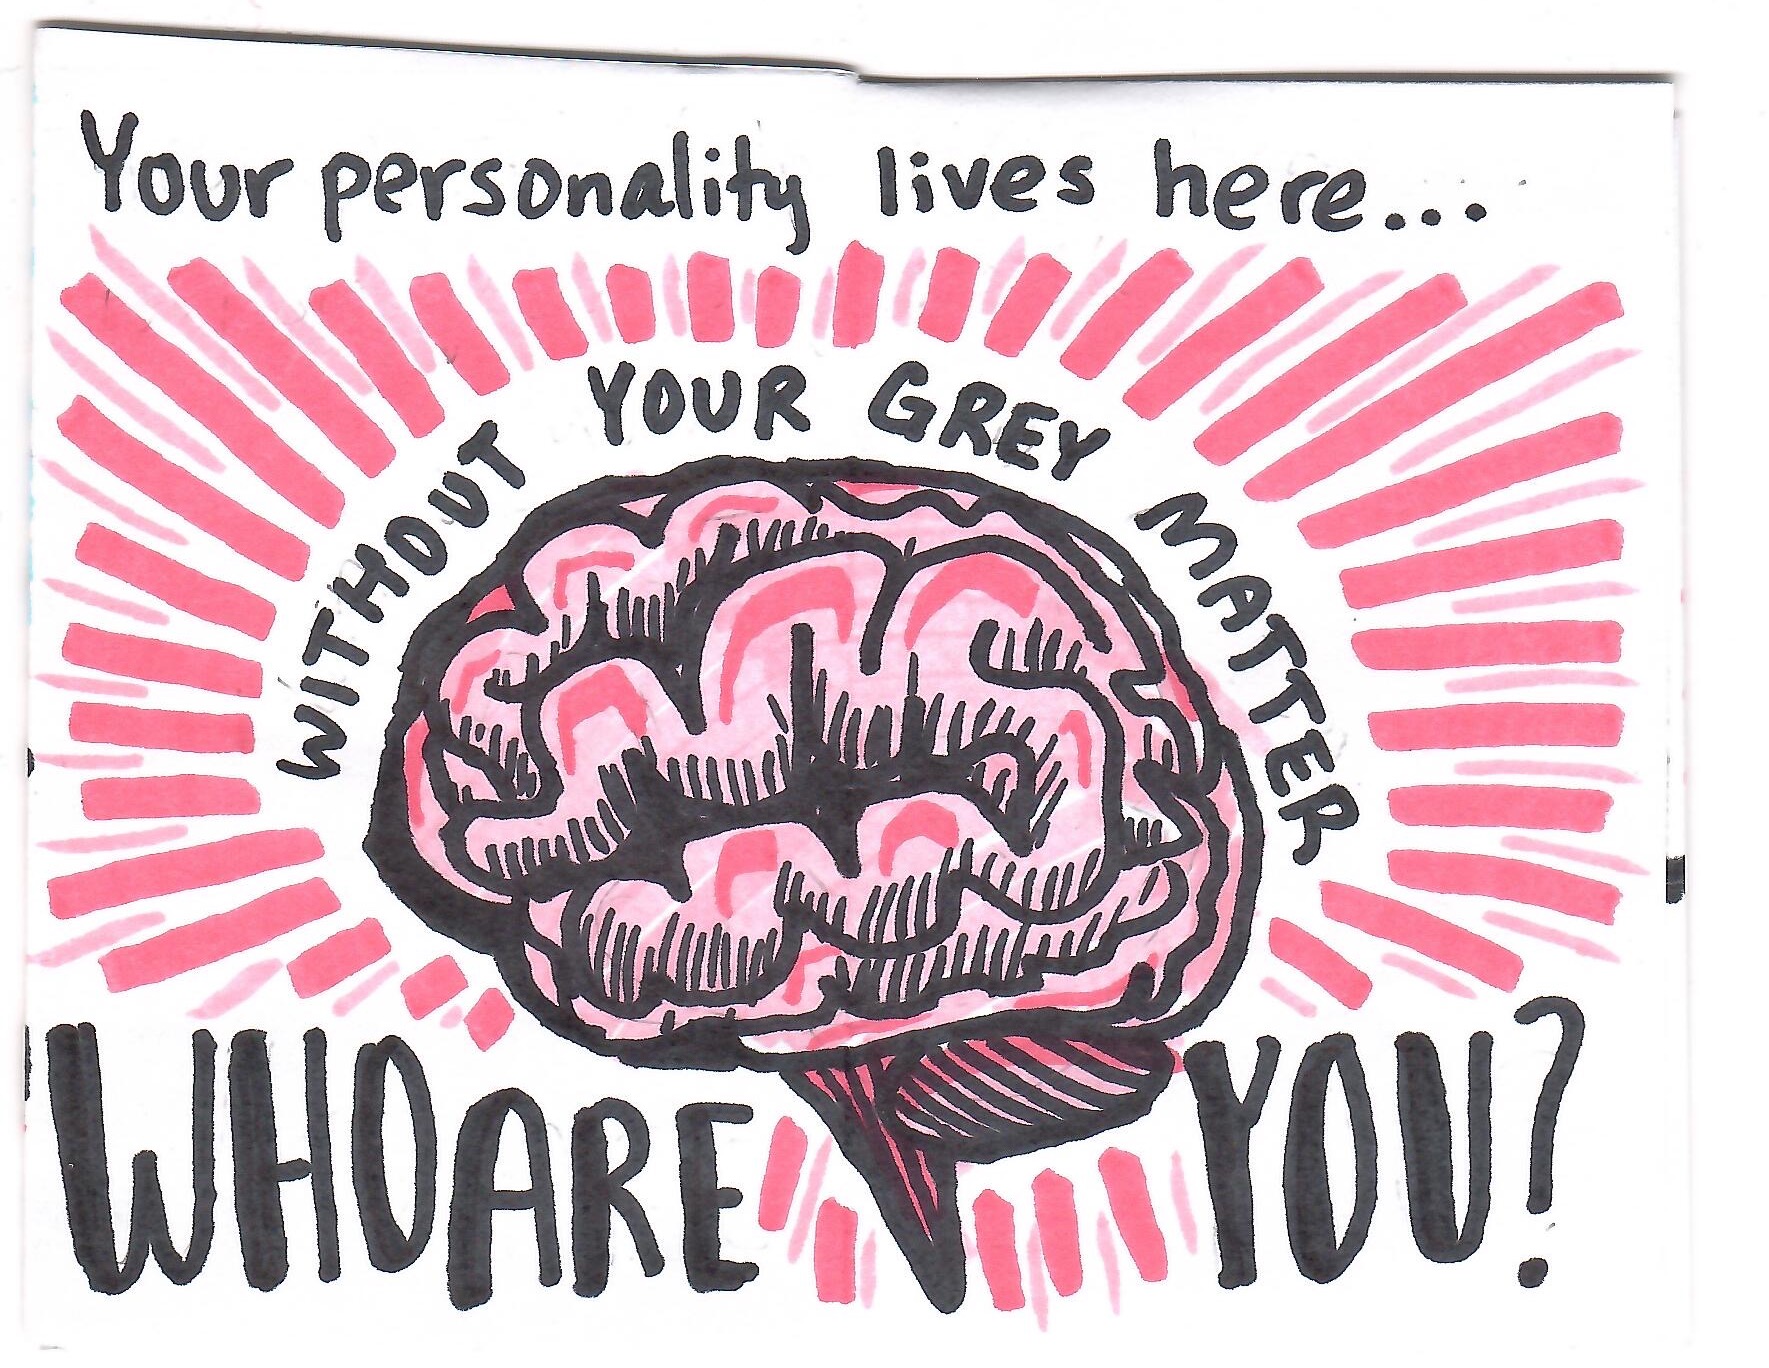 Your personality lives here...
WITHOUT YOUR GREY MATTER
WHO ARE YOU?